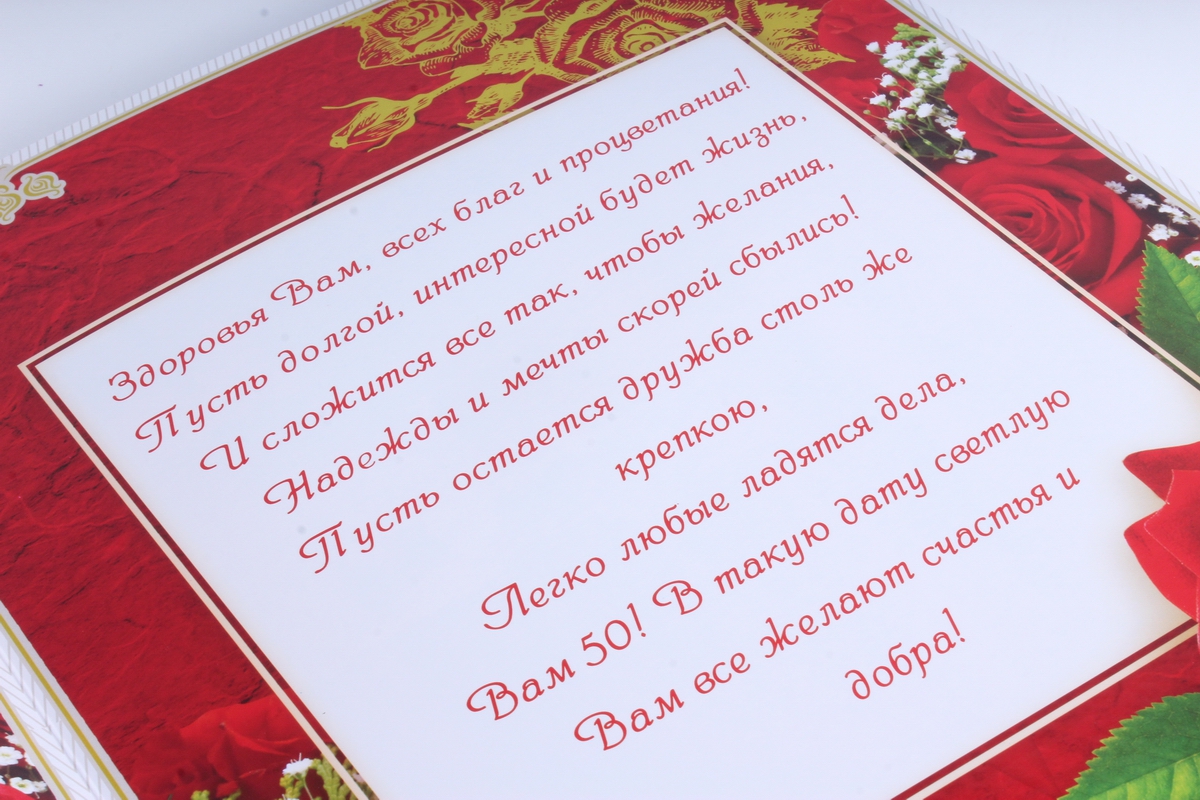 Здоровья Вам, всех благ и процветания!
Пусть долгой, интересной будет жизнь,
И сложится все так, чтобы желания,
Надежды и мечты скорей сбылись!
Пусть остается дружба столь же
крепкою,
Легко любые ладятся дела,
Вам 50! В такую дату светлую
Вам все желают счастья и
добра!